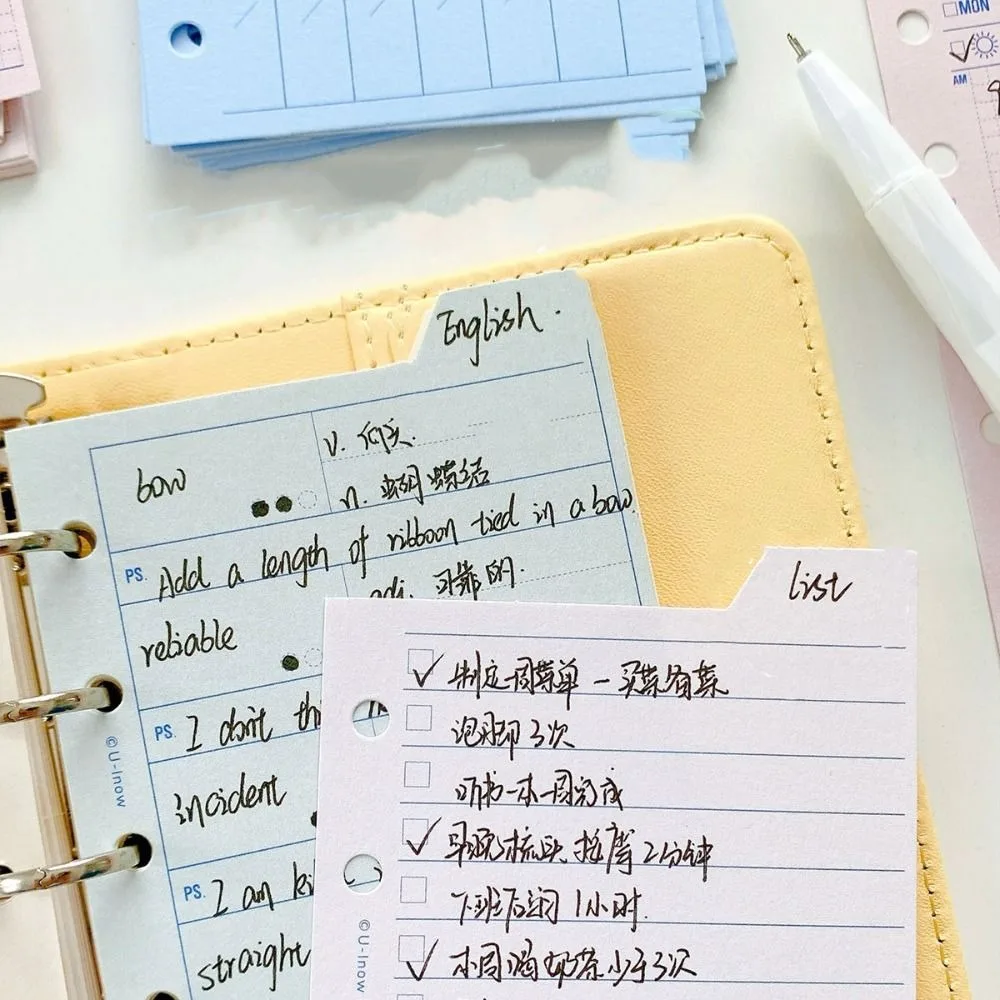 MON
AM
English.
bow
v. 头
n. 蝴蝶结
PS. Add a length of ribbon tied in a bow.
reliable
adj. 可靠的.
PS. I don't th
incident
PS. I am ki
straight
©U-Inow
list
制定一周菜单 - 买菜备菜
泡脚3次
听书一本一周完成
早晚梳头按摩2分钟
下班后 1小时.
本周喝奶茶少于3次
©U-Inow